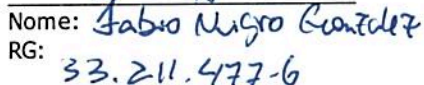 Nome: Fabio Nigro Gonzalez
RG:
33.211.477-6